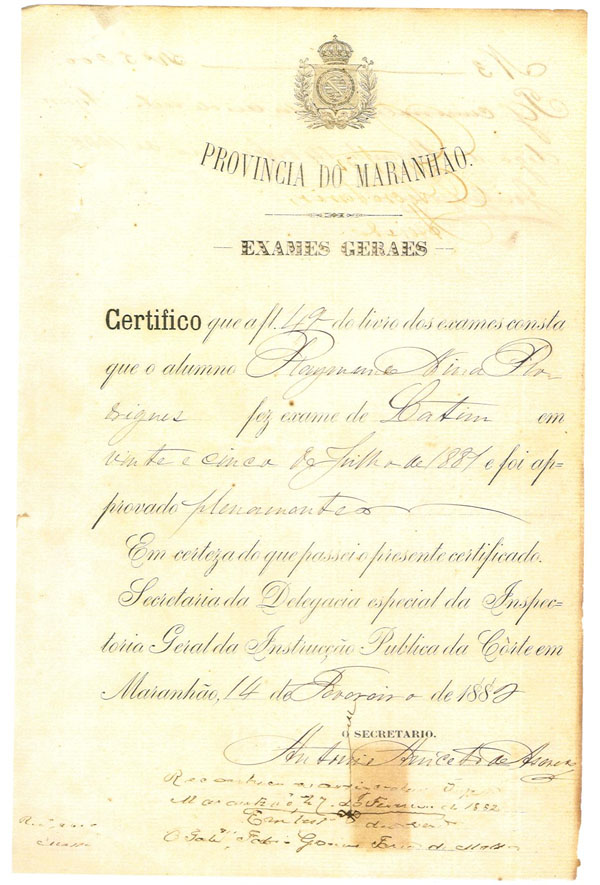 PROVINCIA DO MARANHÃO.
EXAMES GERAES
Certifico que a fl. 49 do livro dos exames consta
que o alumno Raymundo Nina Ro-
drigues fez exame de Latim em
vinte e cinco de Julho de 1881 e foi ap-
provado plenamente
Em certeza do que passei o presente certificado.
Secretaria da Delegacia especial da Inspec-
toria Geral da Instrucção Publica da Côrte em
Maranhão, 14 de Fevereiro de 1882
O SECRETARIO.
Antonio Aniceto de
Maranhão 27 de Fevereiro de 1882